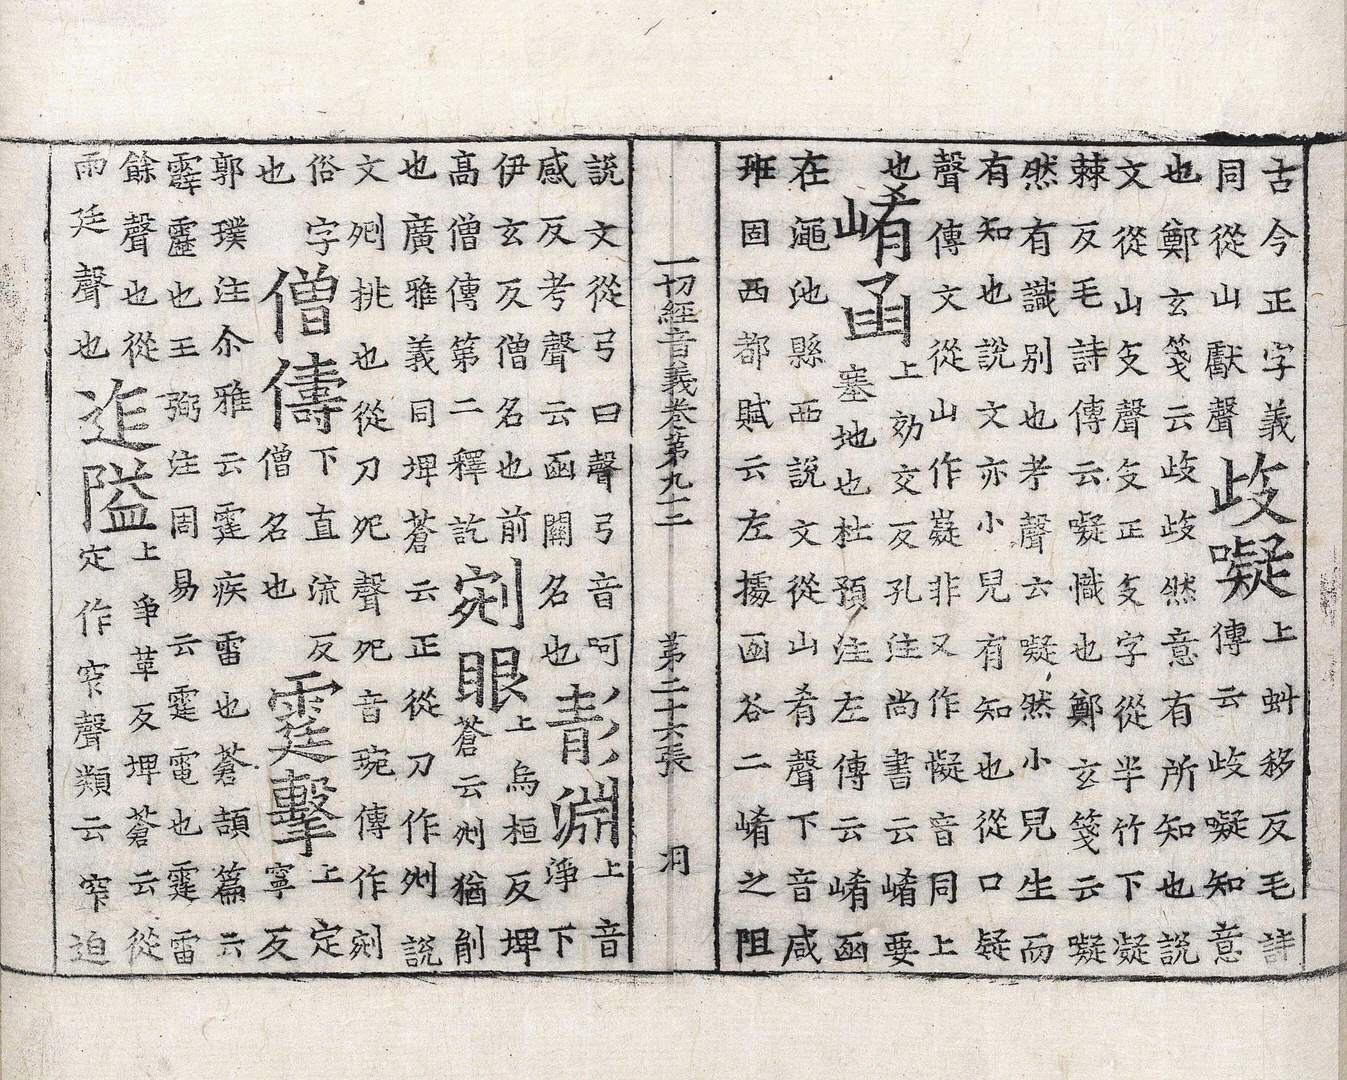 古今正字義
同從山獸聲
歧㘈
上蚑移反毛詩
傳云歧㘈知意
也鄭玄箋云歧歧然意有所知也說
文從山支聲支正支字從半竹下凝
棘反毛詩傳云㘈幟也鄭玄箋云㘈
然有識别也考聲云㘈然小兒生而
有知也說文亦小兒有知也從口疑
聲傳文從山作嶷非又作懝音同上
也
崤函
上効交反孔注尚書云崤要
塞地也杜預注左傳云崤函
在澠池縣西說文從山肴聲下音咸
班固西都賦云左據函谷二崤之阻
一切經音義卷第九十二 第二十六張
說文從弓曰聲弓音呵
感反考聲云函關名也
淵
上音
淨下
伊玄反僧名也前
高僧傳第二釋訖
剜眼
上烏桓反埤
蒼云𠛩猶削
也廣雅義同埤蒼云正從刀作𠛩說
文剜挑也從刀夗聲夗音琬傳作剜
俗字
也
僧儔
下直流反
僧名也
霆擊
上定
寧反
郭璞注尒雅云霆疾雷也蒼頡篇云
霹靂也王弼注周易云霆電也霆雷
餘聲也從
雨廷聲也
迮隘
上爭革反埤蒼云從
定作窄聲類云窄迫